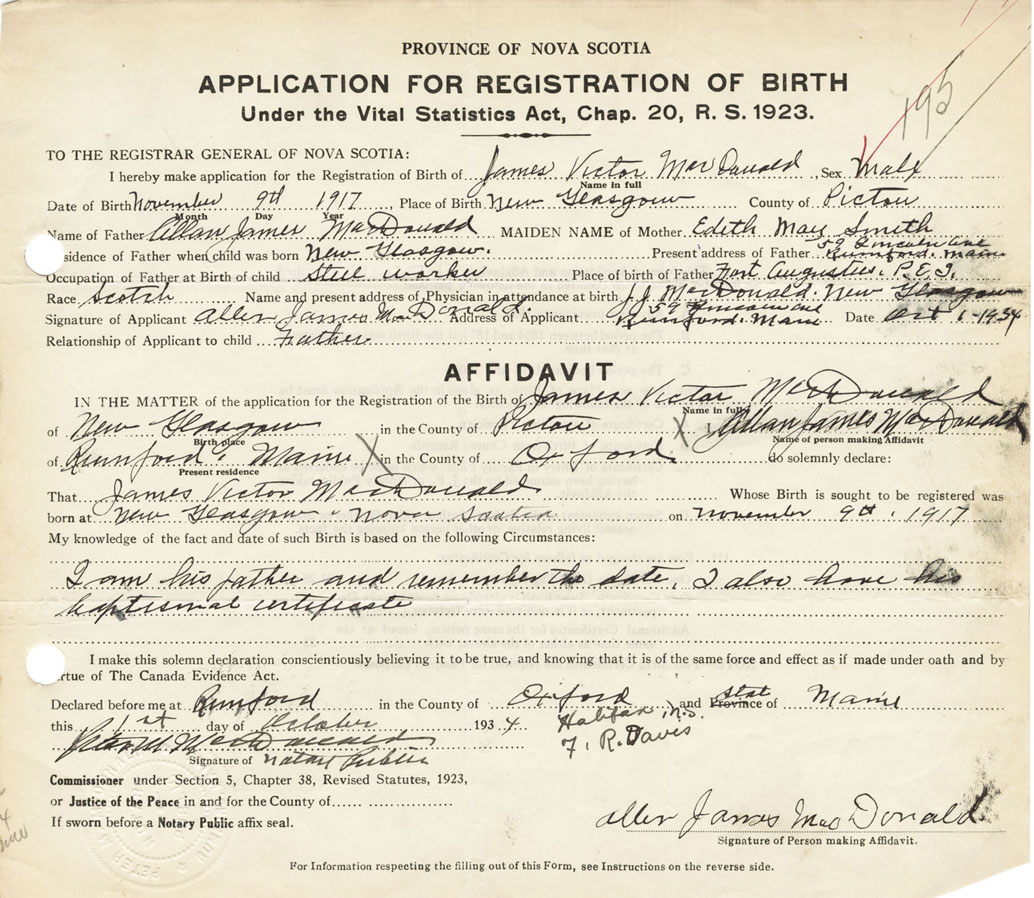 195
PROVINCE OF NOVA SCOTIA
APPLICATION FOR REGISTRATION OF BIRTH
Under the Vital Statistics Act, Chap. 20, R. S. 1923.
TO THE REGISTRAR GENERAL OF NOVA SCOTIA:
I hereby make application for the Registration of Birth of James Victor MacDonald, Sex Male
Name in full
Date of Birth November 9th 1917, Place of Birth New Glasgow County of Pictou
Month Day Year
Name of Father Allan James MacDonald MAIDEN NAME of Mother Edeth May Smith
59 Lincoln Ave
esidence of Father when child was born New Glasgow. Present address of Father Rumford. Maine
Occupation of Father at Birth of child Steel worker Place of birth of Father Fort Augustus. P.E.I.
Race Scotch Name and present address of Physician in attendance at birth J.J. MacDonald. New Glasgow
59 Lincoln Ave
Signature of Applicant Allen James MacDonald. Address of Applicant Rumford. Maine Date Oct 1-1934
Relationship of Applicant to child Father
AFFIDAVIT
IN THE MATTER of the application for the Registration of the Birth of James Victor MacDonald
Name in full
of New Glasgow in the County of Pictou X I, Allan James MacDonald
Birth place Name of person making Affidavit
of Rumford, Maine X in the County of Oxford do solemnly declare:
Present residence
That James Victor MacDonald Whose Birth is sought to be registered was
born at New Glasgow, Nova Scotia on November 9th, 1917
My knowledge of the fact and date of such Birth is based on the following Circumstances:
I am his father and remember the date. I also have his
baptismal certificate
I make this solemn declaration conscientiously believing it to be true, and knowing that it is of the same force and effect as if made under oath and by
irtue of The Canada Evidence Act.
Declared before me at Rumford in the County of Oxford and Province State of Maine
this 1st day of October 1934
Halifax N.S.
F. R. Davis
MacDonald
Signature of Notary Public
Commissioner under Section 5, Chapter 38, Revised Statutes, 1923,
or Justice of the Peace in and for the County of
If sworn before a Notary Public affix seal.
Allen James MacDonald
Signature of Person making Affidavit.
For Information respecting the filling out of this Form, see Instructions on the reverse side.